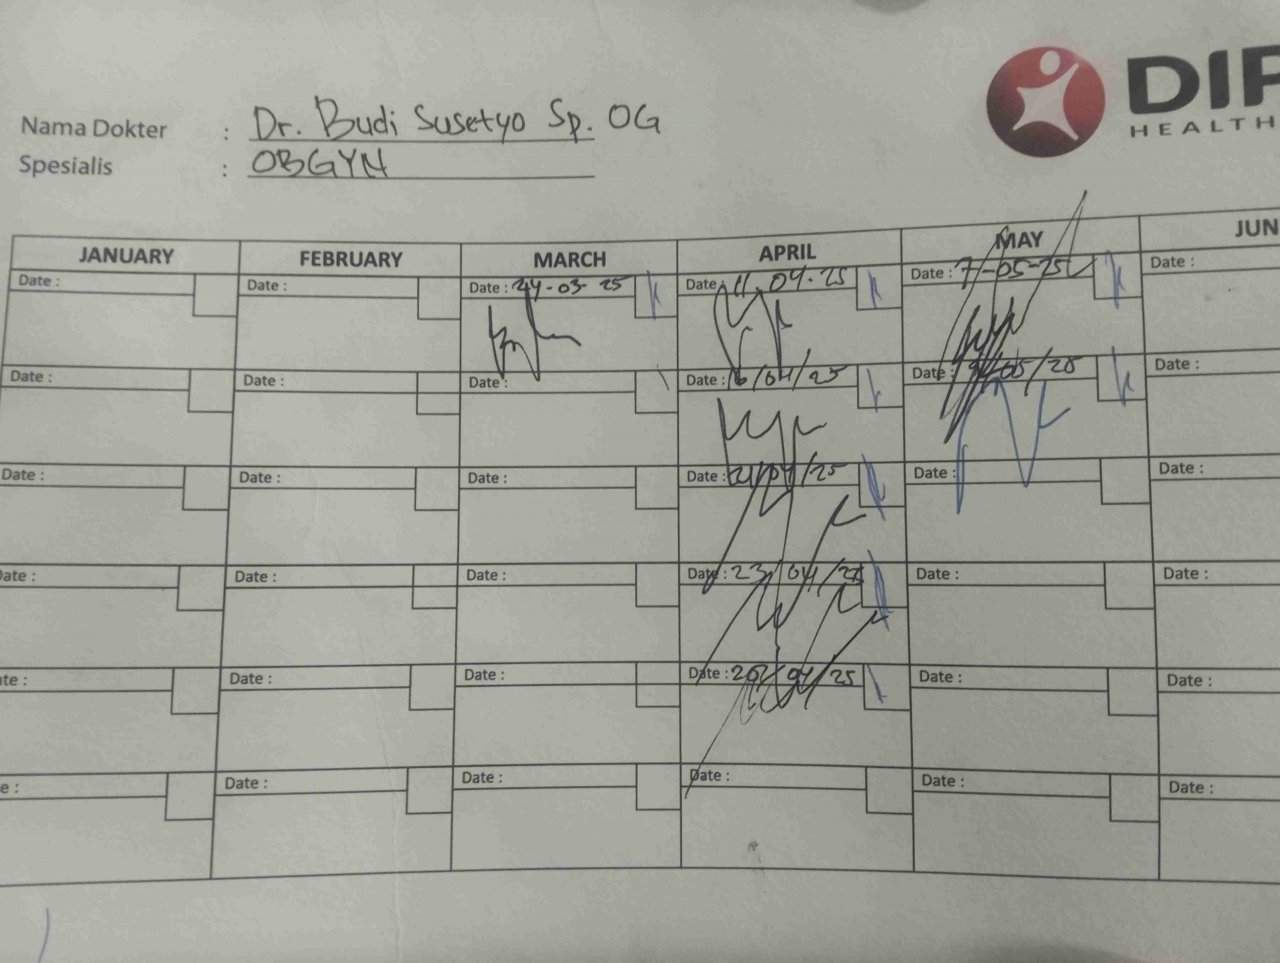 DIP
HEALTH
Nama Dokter : Dr. Budi Susetyo Sp. OG
Spesialis : OBGYN
JANUARY FEBRUARY MARCH APRIL MAY JUN
Date : Date : Date : 24-03-25 Date : 11.04.25 Date : 7-05-25 Date :
Date : Date : Date : Date : 16/04/25 Date : /05/25 Date :
Date : Date : Date : Date : 21/04/25 Date : Date :
Date : Date : Date : Date : 23/04/25 Date : Date :
te : Date : Date : Date : /04/25 Date : Date :
e : Date : Date : Date : Date : Date :